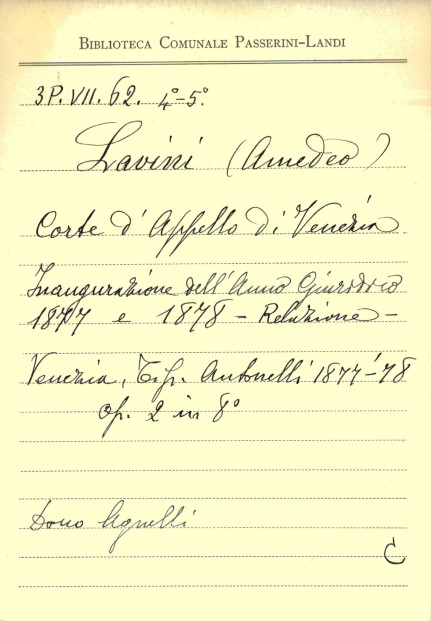 BIBLIOTECA COMUNALE PASSERINI-LANDI
3P.VII.62. 4°-5°
Lavini (Amedeo)
Corte d'Appello di Venezia
Inaugurazione dell'Anno Giuridico
1877 e 1878 - Relazione -
Venezia, Tip. Antonelli 1877-78
op. 2 in 8°
Dono Agnelli
C